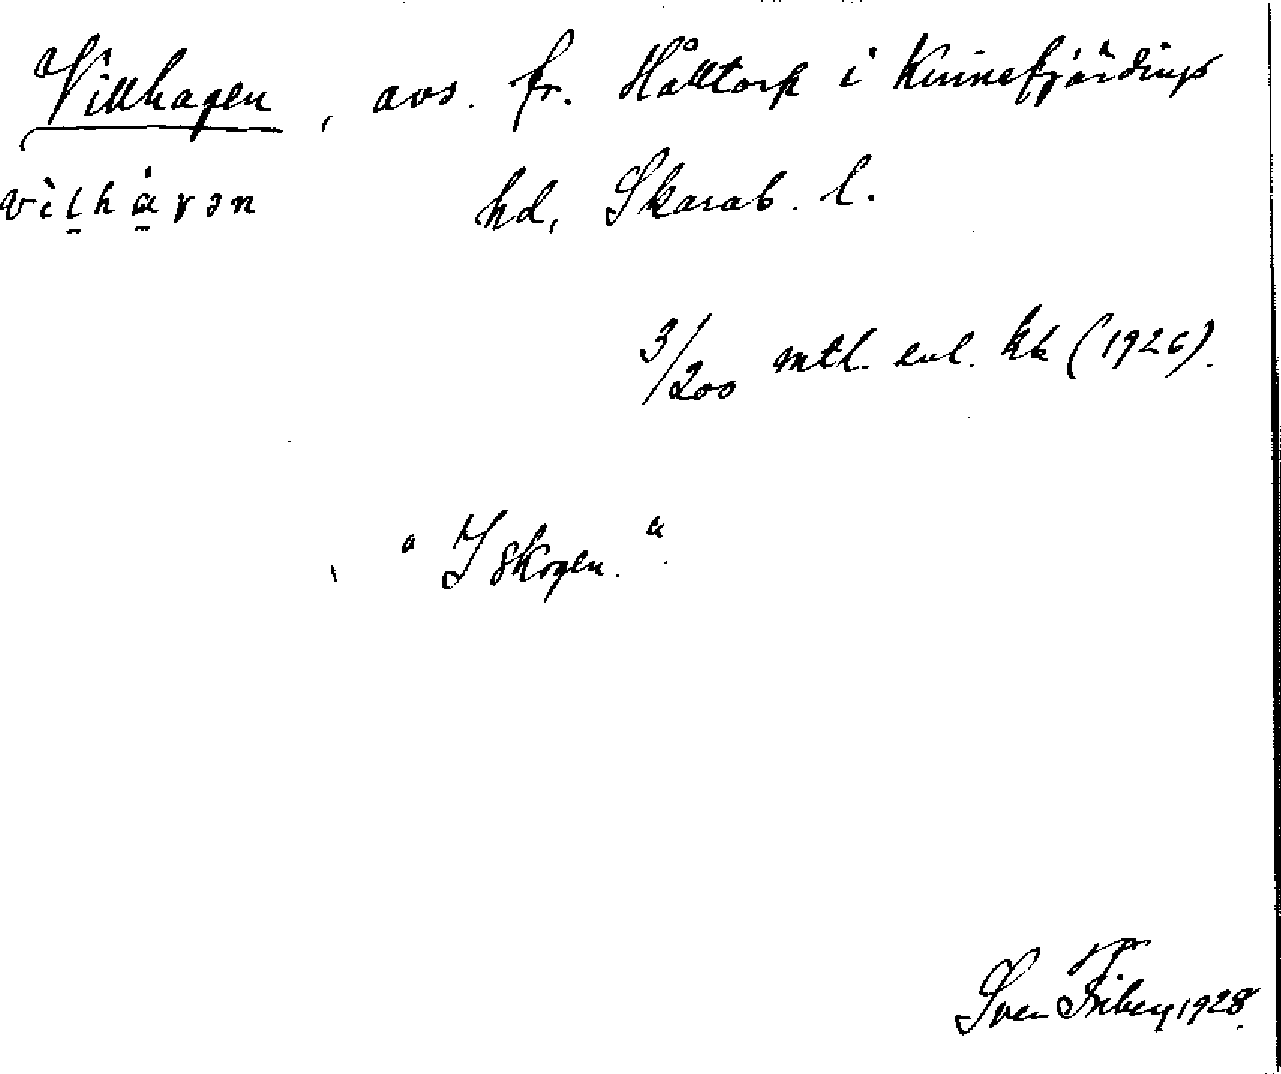 Villhagen, avs. fr. Hålltorp i Kinnefjärdings
vìlhàγən hd, Skarab. l.
3/200 mtl. enl. kk (1926).
"I skogen."
Sven Friberg 1928.